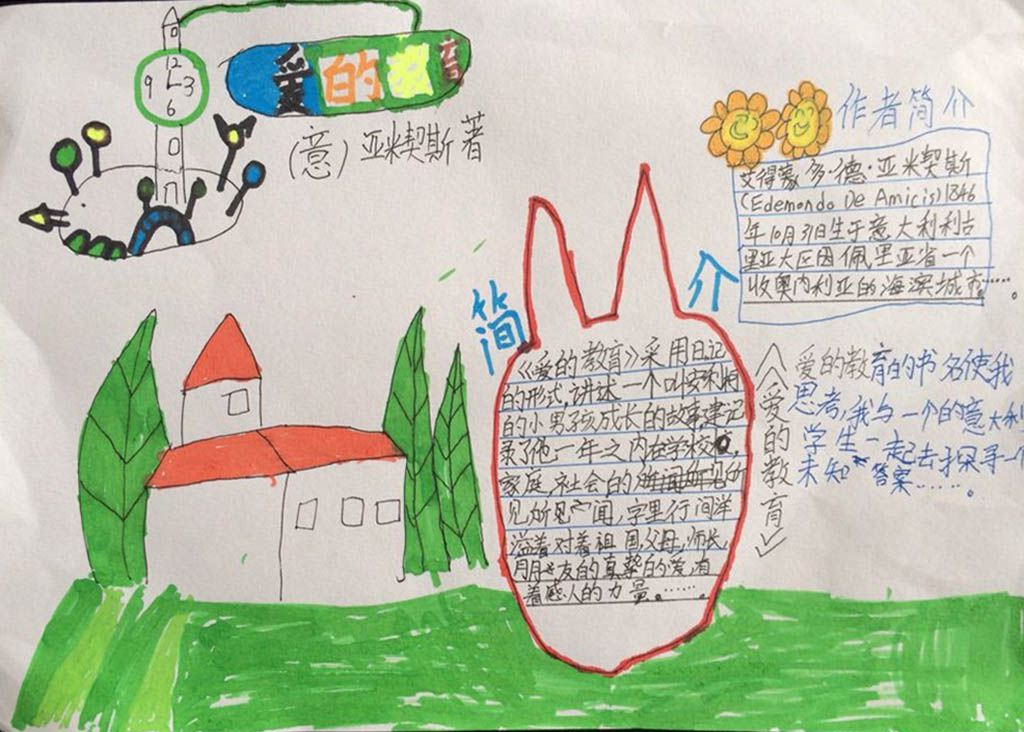 12
9 3
6
爱的教育
(意) 亚米契斯 著
作者简介
艾得蒙多·德·亚米契斯
(Edemondo De Amicis)1846
年10月31日生于意大利利古
里亚大区因佩里亚省一个
收奥内利亚的海滨城市……。
简介
《爱的教育》采用日记
的形式,讲述一个叫安利柯
的小男孩成长的故事,记
录了他一年之内在学校,
家庭,社会的所
见,所闻,字里行间洋
溢着对着祖国,父母,师长,
朋友的真挚的爱,有
着感人的力量。……。
《爱的教育》
爱的教育的书名使我
思考,我与一个的意大利
学生一起去探寻一个
未知答案……。